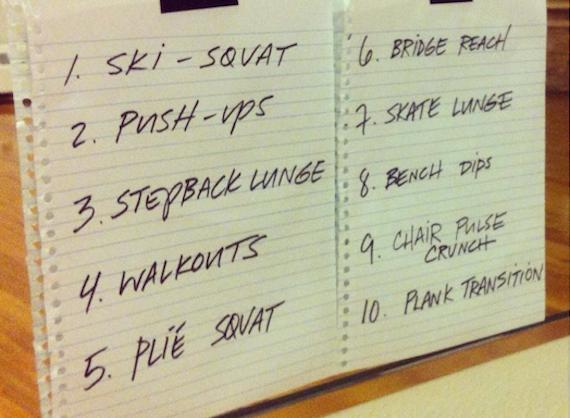 1. SKI - SQUAT
2. PUSH-UPS
3. STEPBACK LUNGE
4. WALKOUTS
5. PLIË SQUAT
6. BRIDGE REACH
7. SKATE LUNGE
8. BENCH DIPS
9. CHAIR PULSE
CRUNCH
10. PLANK TRANSITION